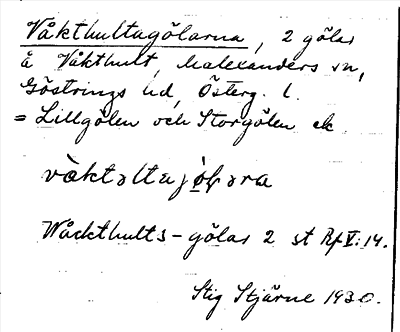 Våkthultagölarna, 2 gölar
å Våkthult, Malexanders sn,
Göstrings hd, Österg. l.
= Lillgölen och Storgölen ek
vàktəltajö̀lara
Wåckthults-gölar 2 st Rf V:14.
Stig Stjärne 1930.